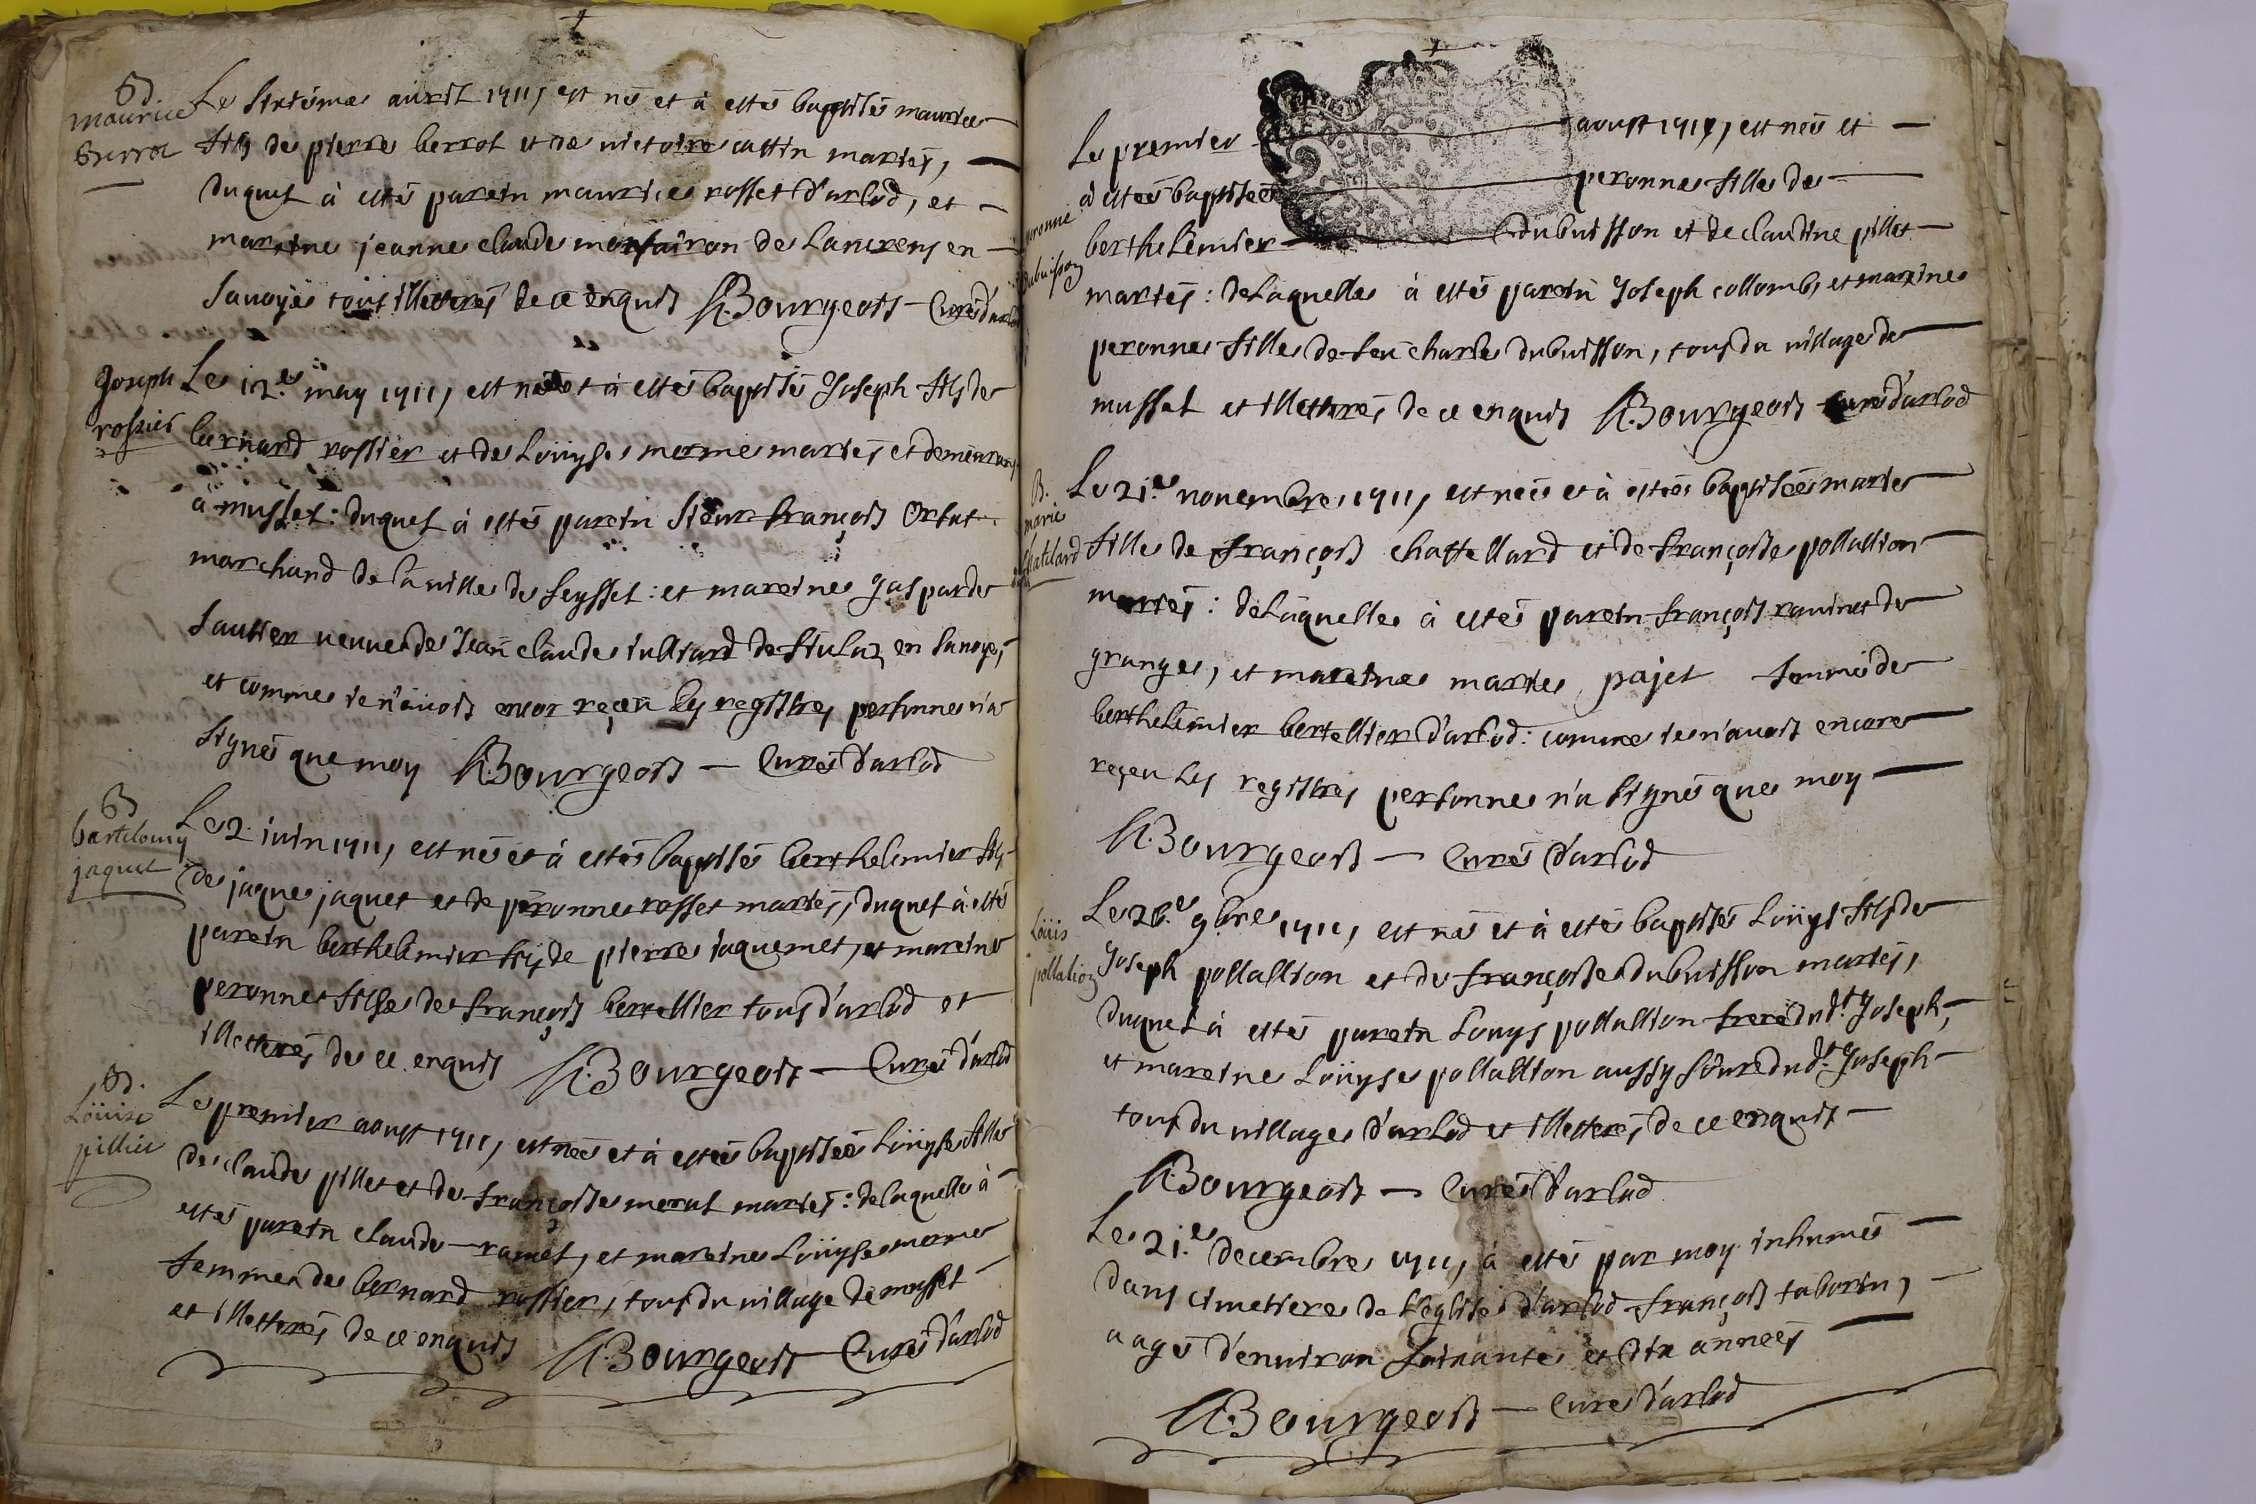 B
maurice
berrot
Le sixiéme avril 1711, est né et à estés baptisés maurice
fils de pierre berrot et de victoire cattin mariés,
duquel à estés parein maurice rosset d'arlod, et
mareine jeanne claude monfairon de Lancrens en
savoÿe tous illetterés de ce enquis R. Bourgeois Curé d'arlod
joseph
rossier
Le 12.e may 1711, est né et à estés baptisés Joseph fils de
bernard rossier et de Loüyse merme mariés et demeurans
à musset: duquel à estés parein sieur françois Orset
marchand de la ville de seyssel: et mareine gasparde
sautier veuve de Jean claude julliard de en savoye,
et comme je n'avois encor reçeu les registres personne n'a
signés que moy R. Bourgeois Curés d'arlod
B
bartelemy
jaquet
Le 2. iuin 1711, est nés et à estés baptisés berthelemier fils
de jaques jaquet et de péronne rosset mariés, duquel à estés
parein berthelemier fils de pierre iaquemet, et mareine
peronne fille de françois bertellier tous d'arlod et
illetterés de ce enquis R. Bourgeois Curés d'arlod
B.
Loüise
pillier
Le premier aoust 1711, est nés et à estés baptisés Loüyse fille
de claude pillet et de françoise merat mariés: de laquelle à
estés parein claude ramel, et mareine Loüyse merme
femme de bernard rossier, tous du village de musset
et illetterés de ce enquis R. Bourgeois Curés d'arlod
peronne
dubuisson
Le premier aoust 1711, est née et
à estés baptisés peronne fille de
berthelemier dubuisson et de claudine pillet
mariés: de Laquelle à estés parein Joseph collomb, et mareine
peronne fille de feu charle dubuisson, tous du village de
musset et illetterés de ce enquis R. Bourgeois curés d'arlod
B.
marie
chatelard
Le 21.e novembre 1711, est née et à estés baptisés marie
fille de françois chastellard et de françoise pollallion
mariés: de Laquelle à estés parein françois ravinet de
granges, et mareine marie pajet femme de
berthelemier bertellier d'arlod: comme ie n'avois encore
reçeu Les registres personne n'a signés que moy
R. Bourgeois Curés d'arlod
Loüis
pollation
Le 26.e 9bre 1711, est né et à estés baptisés Loüys fils de
Joseph pollallion et de françoise dubuisson mariés,
duquel à estés parein Louys pollallion frere dud.t Joseph,
et mareine Loüyse pollallion aussy sœur dud.t Joseph
tous du village d'arlod et illetterés de ce enquis
R. Bourgeois Curés d'arlod
Le 21.e decembre 1711, à estés par moy inhumés
dans cimetiere de L'eglise d'arlod françois taborin,
aagé d'environ soixante et dix années
R. Bourgeois Curé d'arlod